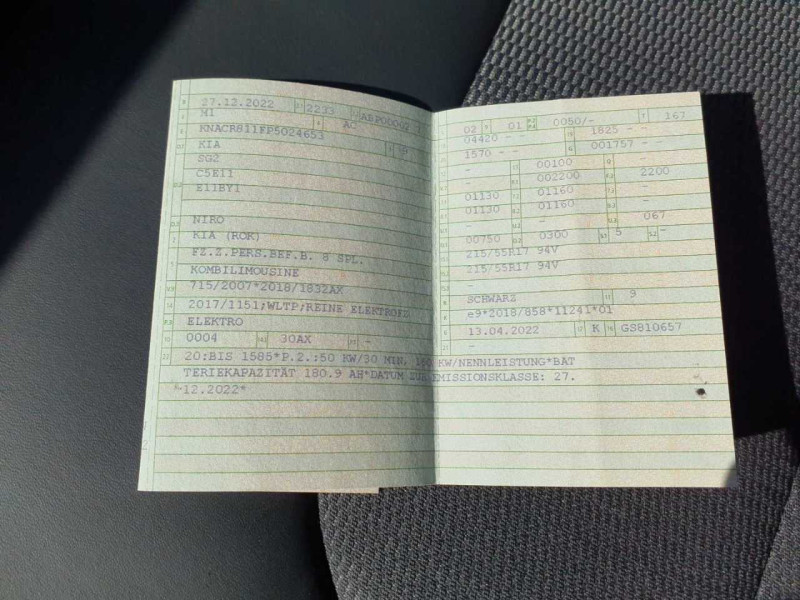 27.12.2022 2233
M1 AC
KNACR811FP5024653
KIA
SG2
C5E11
E11BY1
NIRO
KIA (ROK)
FZ.Z.PERS.BEF.B. 8 SPL.
KOMBILIMOUSINE
715/2007*2018/1832AX
2017/1151;WLTP;REINE
ELEKTRO
0004 30AX -
02 01 0050/- 167
04420 - - 1825 - -
1570 - - 001757 - -
- 00100
- 002200 2200
01130 01160 -
01130 01160 -
- - 067
00750 0300 5 -
215/55R17 94V
215/55R17 94V
-
-
SCHWARZ 9
e9*2018/858*11241*01
13.04.2022 K GS810657
20:BIS 1585*P.2.:50 KW/30 MIN, KW/NENNLEISTUNG*BAT
TERIEKAPAZITÄT 180.9 AH*DATUM ZUR EMISSIONSKLASSE: 27.
-12.2022*